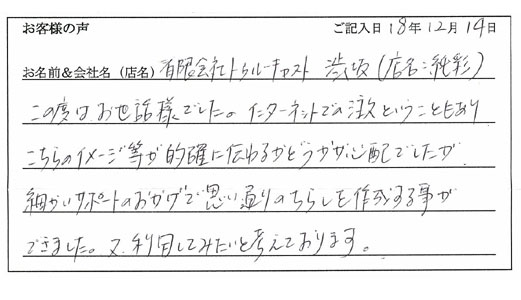 お客様の声 ご記入日 18年 12月 14日
お名前&会社名(店名) 有限会社トゥルーキャスト 渋坂(店名:純彩)
この度は、お世話様でした。インターネットでの注文ということもあり
こちらのイメージ等が的確に伝わるかどうか心配でしたが
細かいサポートのおかげで思い通りのちらしを作成する事が
できました。又、利用してみたいと考えております。